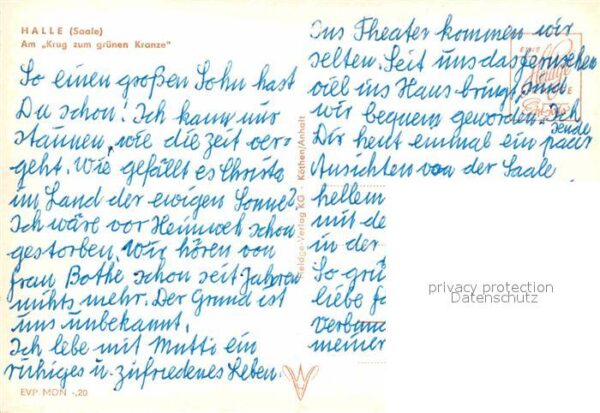 HALLE (Saale)
Am „Krug zum grünen Kranze"
So einen großen Sohn hast
Du schon! Ich kann nur
staunen, wie die Zeit ver-
geht. Wie gefällt es Christa
im Land der ewigen Sonne?
Ich wäre vor Heimweh schon
gestorben. Wir hören von
Frau Bothe schon seit Jahren
nichts mehr. Der Grund ist
uns unbekannt.
Ich lebe mit Mutti ein
ruhiges u. zufriedenes Leben.
EVP MDN -,20
Reldge-Verlag KG · Köthen/Anhalt
Ins Theater kommen wir
selten. Seit uns das Fernsehen
viel ins Haus bringt, sind
wir bequem geworden. Ich
sende
Dir heut einmal ein paar
Ansichten von der Saale
hellem
mit de
in der
So grü
liebe
verbun
meiner
privacy protection
Datenschutz